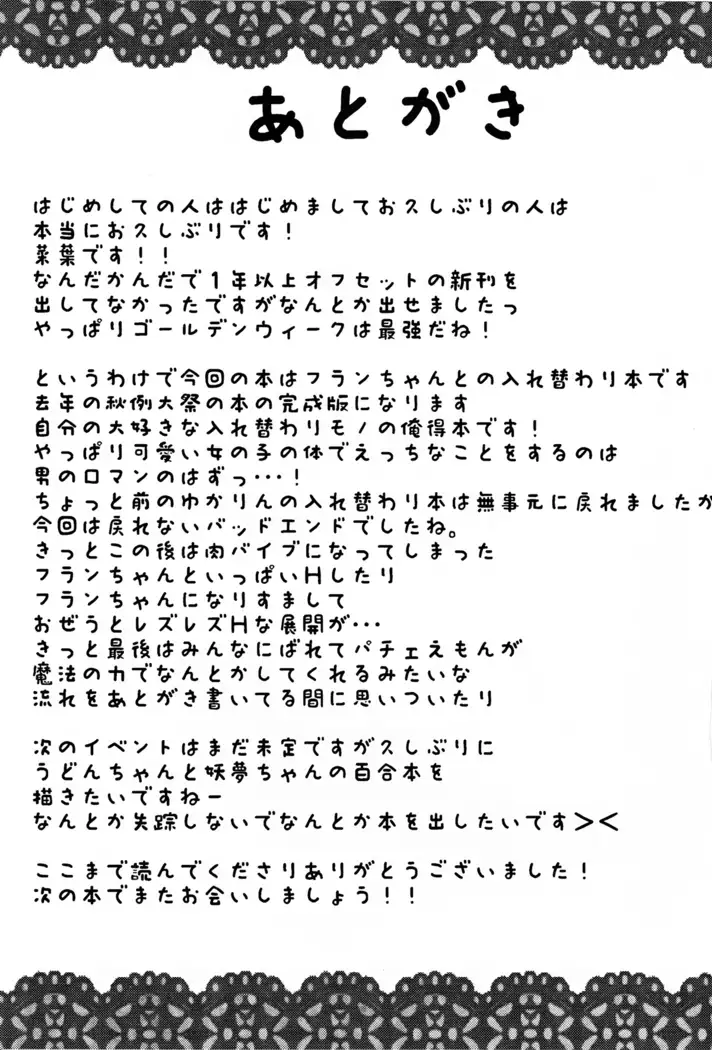 あとがき
はじめしての人ははじめましてお久しぶりの人は
本当にお久しぶりです!
菜葉です!!
なんだかんだで1年以上オフセットの新刊を
出してなかったですがなんとか出せましたっ
やっぱりゴールデンウィークは最強だね!
というわけで今回の本はフランちゃんとの入れ替わり本です
去年の秋例大祭の本の完成版になります
自分の大好きな入れ替わりモノの俺得本です!
やっぱり可愛い女の子の体でえっちなことをするのは
男のロマンのはずっ・・・!
ちょっと前のゆかりんの入れ替わり本は無事元に戻れましたが
今回は戻れないバッドエンドでしたね。
きっとこの後は肉バイブになってしまった
フランちゃんといっぱいHしたり
フランちゃんになりすまして
おぜうとレズレズHな展開が・・・
きっと最後はみんなにばれてパチェえもんが
魔法の力でなんとかしてくれるみたいな
流れをあとがき書いてる間に思いついたり
次のイベントはまだ未定ですが久しぶりに
うどんちゃんと妖夢ちゃんの百合本を
描きたいですねー
なんとか失踪しないでなんとか本を出したいです><
ここまで読んでくださりありがとうございました!
次の本でまたお会いしましょう!!